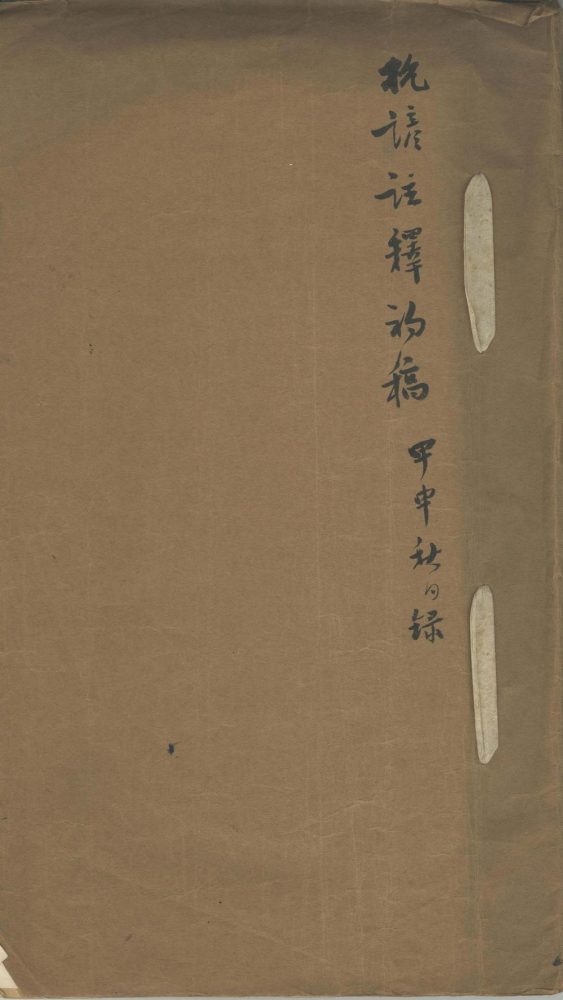 杭諺註釋初稿
甲申秋日録